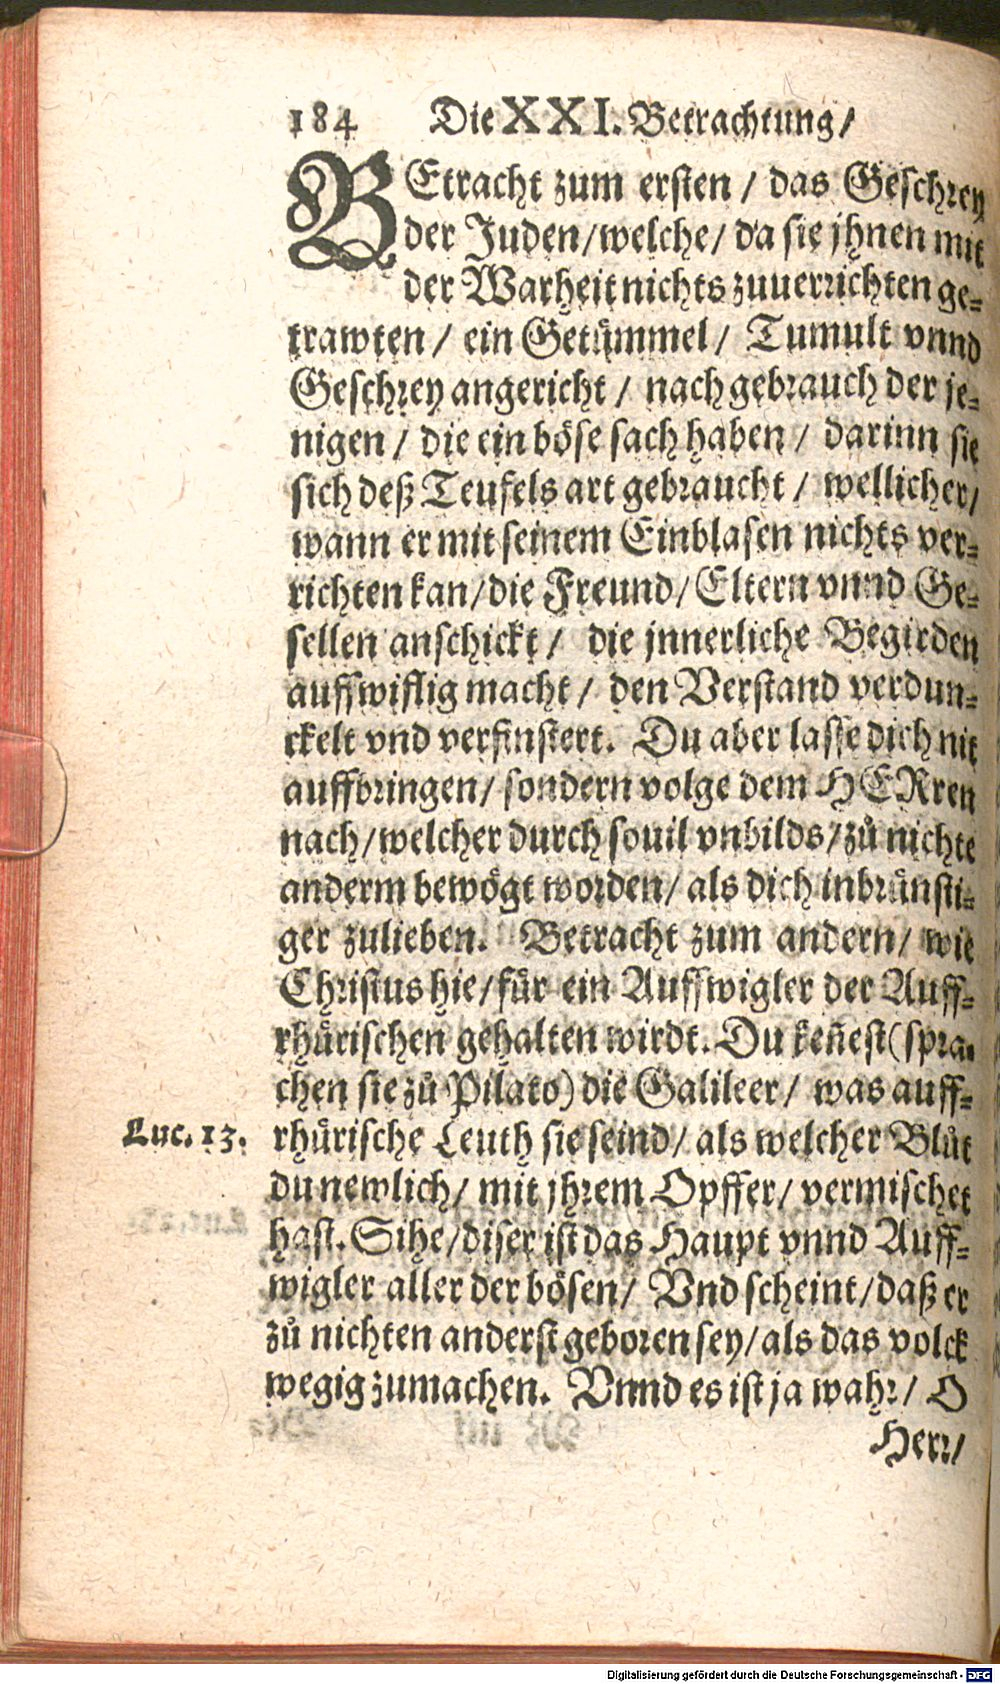 184 Die XXI. Betrachtung/
BEtracht zum ersten / das Geschrey
der Juden/welche/ da sie jhnen mit
der Warheit nichts zuuerrichten ge-
trawten / ein Getümmel / Tumult vnnd
Geschrey angericht / nach gebrauch der je-
nigen / die ein böse sach haben / darinn sie
sich deß Teufels art gebraucht / wellicher/
wann er mit seinem Einblasen nichts ver-
richten kan/die Freund/Eltern vnnd Ge-
sellen anschickt / die jnnerliche Begirden
auffwiflig macht / den Verstand verdun-
ckelt vnd verfinstert. Du aber lasse dich nit
auffbringen/ sondern volge dem HERren
nach/welcher durch souil vnbilds/zů nichte
anderm bewögt worden/ als dich inbrünsti-
ger zulieben. Betracht zum andern/ wie
Christus hie/für ein Auffwigler der Auff-
rhürischen gehalten wirdt. Du keñest(spra-
chen sie zů Pilato) die Galileer/ was auff-
Luc. 13. rhürische Leuth sie seind/ als welcher Blůt
du newlich/ mit jhrem Opffer/ vermischet
hast. Sihe/diser ist das Haupt vnnd Auff-
wigler aller der bösen/ Vnd scheint/daß er
zů nichten anderst geboren sey/als das volck
wegig zumachen. Vnnd es ist ja wahr/ O
Herr/
Digitalisierung gefördert durch die Deutsche Forschungsgemeinschaft - DFG